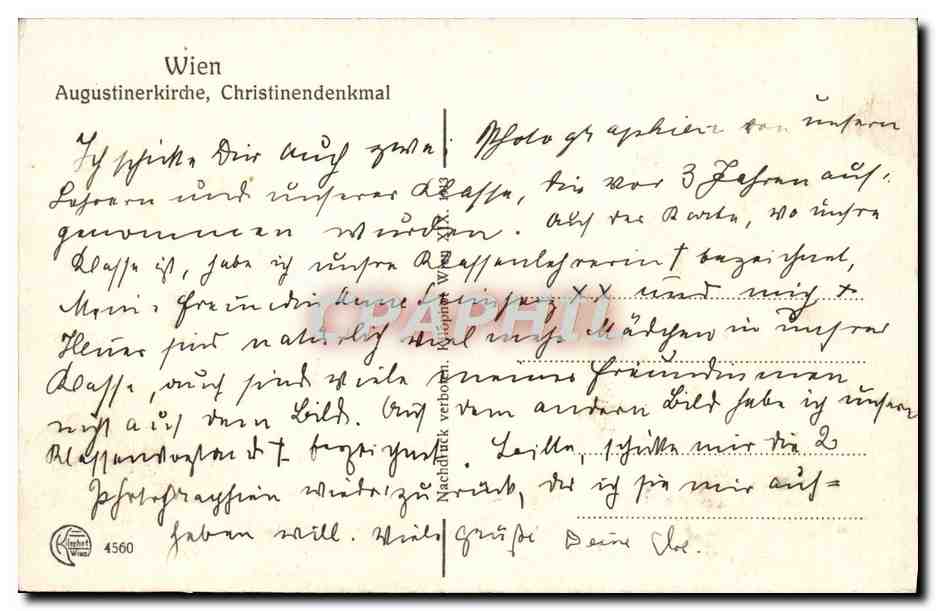 Wien
Augustinerkirche, Christinendenkmal
Ich schicke Dir auch zwei Photographien von unsern
Lehrern und unserer Klasse, die vor 3 Jahren auf-
genommen wurden. Auf der Karte, wo unsre
Klasse ist, habe ich unsre Klassenlehrerin † bezeichnet,
Meine Freundin Anne xx und mich +
Heuer sind natürlich viel mehr Mädchen in unsrer
Klasse, auch sind viele meiner Freundinnen
nicht auf dem Bild. Auf dem andern Bild habe ich unsern
Klassenvorstand † bezeichnet. Bitte, schicke mir die 2
Photographien wieder zurück, da ich sie mir auf=
heben will. Viele Grüße Deine
Nachdruck verboten. Kilophot Wien XIX.
CPAPHIL
Kilophot
Wien
4560